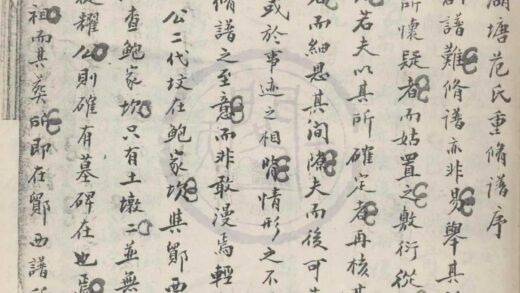 湖塘范氏重脩譜序
譜難脩譜亦非易舉其
所懷疑者而姑置之敷衍從
若夫以其所確定者再核其
而細思其間隙夫而後可
或於事迹之相背情形之不
脩譜之至意而非敢漫焉輕
公二代坟在鮑家坎與鄮西
查鮑家坎只有土墩二並無
從耀公則確有墓碑在也焉
祖而其葬所即在鄮西譜